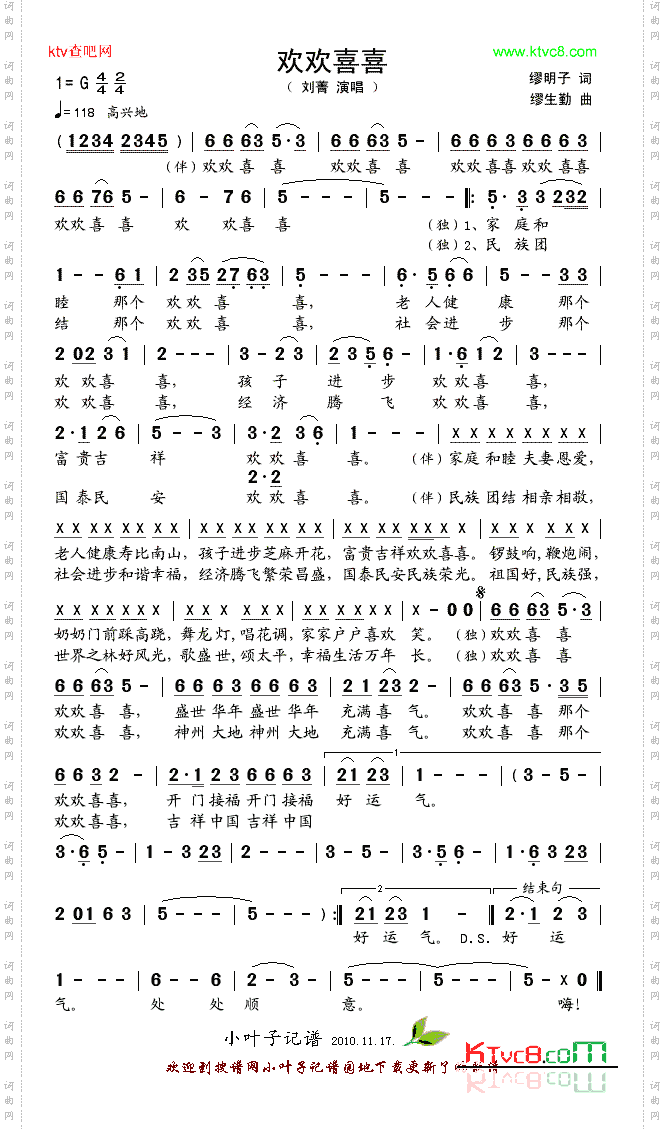 ktv查吧网
欢欢喜喜
www.ktvc8.com
1=G 4/4 2/4
（ 刘菁 演唱 ）
缪明子 词
缪生勤 曲
♩=118 高兴地
( 1234 2345 ) | 6 6 63 5·3 | 6 6 63 5 - | 6 6 63 6 6 63 |
（伴）欢欢 喜 喜 欢欢 喜 喜 欢欢喜喜 欢欢 喜喜
6 6 76 5 - | 6 - 7 6 | 5 - - - | 5 - - - ‖: 5· 3 3 232 |
欢欢 喜 喜 欢 欢 喜 喜 （独）1、家 庭 和
（独）2、民 族 团
1 - - 6 1 | 2 35 27 63 | 5 - - - | 6· 5 6 6 | 5 - - 3 3 |
睦 那个 欢 欢 喜 喜 喜， 老 人健 康 那个
结 那个 欢 欢 喜 喜 喜， 社 会进 步 那个
2 02 3 1 | 2 - - - | 3 - 2 3 | 2 3 5 6 - | 1·6 1 2 | 3 - - - |
欢 欢喜 喜， 孩 子 进 步 欢欢 喜 喜，
欢 欢喜 喜， 经 济 腾 飞 欢欢 喜 喜，
2·1 2 6 | 5 - - 3 | 3·2 3 6 | 1 - - - | X X X X X X X X |
富 贵 吉 祥 欢 欢 喜 喜。 （伴）家庭 和睦 夫妻 恩爱，
2·2
国 泰 民 安 欢 欢 喜 喜。 （伴）民族 团结 相亲 相敬，
X X X X X X X X | X X X X X X X X | X X X X X X X X | X X X X X X |
老人健康寿比南山，孩子进步芝麻开花，富贵吉祥欢欢喜喜。锣鼓响，鞭炮闹，
社会进步和谐幸福，经济腾飞繁荣昌盛，国泰民安民族荣光。祖国好，民族强，
X X X X X X X | X X X X X X | X X X X X X X | X - 0 0 | 6 6 63 5·3 |
奶奶门前踩高跷，舞龙灯，唱花调，家家户户喜欢 笑。（独）欢欢 喜 喜
世界之林好风光，歌盛世，颂太平，幸福生活万年 长。（独）欢欢 喜 喜
6 6 63 5 - | 6 6 6 3 6 6 6 3 | 2 1 23 2 - | 6 6 63 5·35 |
欢欢 喜 喜， 盛世 华年 盛世 华年 充满 喜 气。 欢欢 喜 喜 那个
欢欢 喜 喜， 神州 大地 神州 大地 充满 喜 气。 欢欢 喜 喜 那个
1
6 6 3 2 - | 2·1 2 3 6 6 6 3 | 21 23 | 1 - - - | ( 3 - 5 - |
欢欢喜喜， 开 门 接福 开门 接福 好 运 气。
欢欢喜喜， 吉 祥 中国 吉祥 中国
3·6 5 - | 1 - 3 23 | 5 - - - | 6 - 5 - | 3·5 6 - | 1·6 3 23 |
2 结束句
2 01 6 3 | 5 - - - | 5 - - - ) :‖ 21 23 1 - ‖ 2·1 2 3 |
好 运 气。 D.S. 好 运
1 - - - | 6 - 6 - | 2 - 3 - | 5 - - - | 5 - - - | 5 - X 0 ‖
气。 处 处 顺 意。 嗨!
小叶子记谱 2010.11.17.
KTvc8.com
词曲网